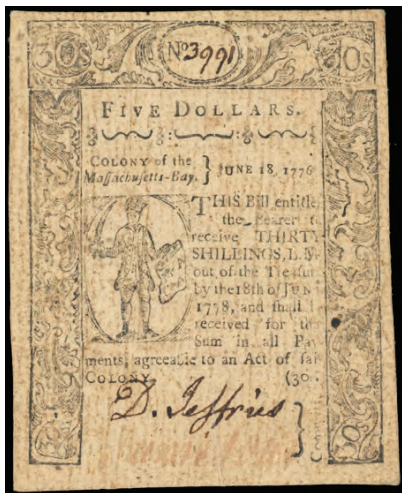 30s No 3991 30s
FIVE DOLLARS.
COLONY of the
Maſſachuſetts-Bay. } JUNE 18, 1776
THIS Bill entitle
the Bearer t
receive THIRTY
SHILLINGS, L. M
out of the Treaſu
by the 18th of JUN
1778, and ſhall
received for th
Sum in all Pay
ments, agreeable to an Act of ſai
COLONY. (30
D. Jeffries }
30s